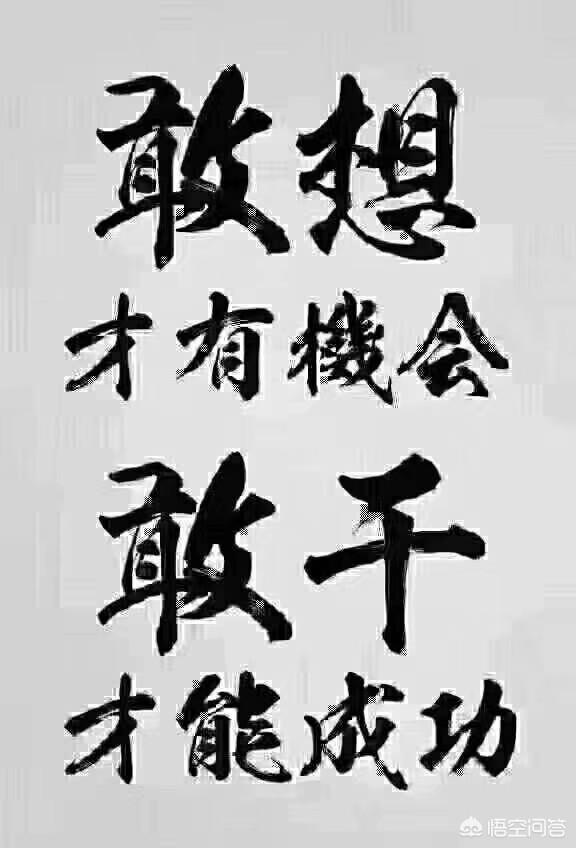 敢想
才有機会
敢干
才能成功
悟空问答